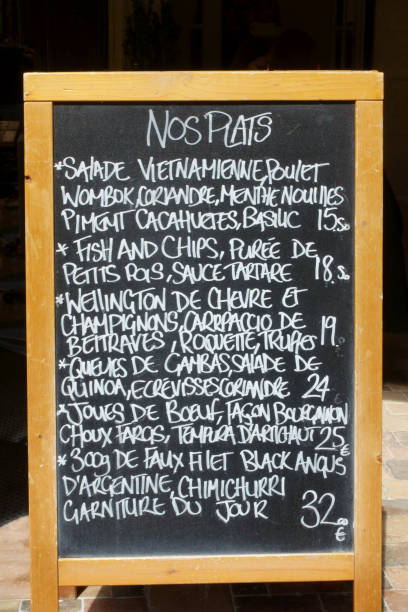 NOS PLATS
*SALADE VIETNAMIENNE, POULET
WOMBOK, CORIANDRE, MENTHE NOUILLES
PIMENT CACAHUETES, BASILIC 15.50
* FISH AND CHIPS, PURÉE DE
PETITS POIS, SAUCE TARTARE 18.50
*WELLINGTON DE CHEVRE ET
CHAMPIGNONS, CARRPACCIO DE
BETTRAVES, ROQUETTE, TRUFFES 19.
*QUEUES DE GAMBAS, SALADE DE
QUINOA, ECREVISSES CORIANDRE 24
*JOUES DE BOEUF, FAÇON BOURGUIGNON
CHOUX FARCIS, TEMPURA D'ARTICHAUT 25 €
* 300g DE FAUX FILET BLACK ANGUS
D'ARGENTINE, CHIMICHURRI
GARNITURE DU JOUR 32.00 €